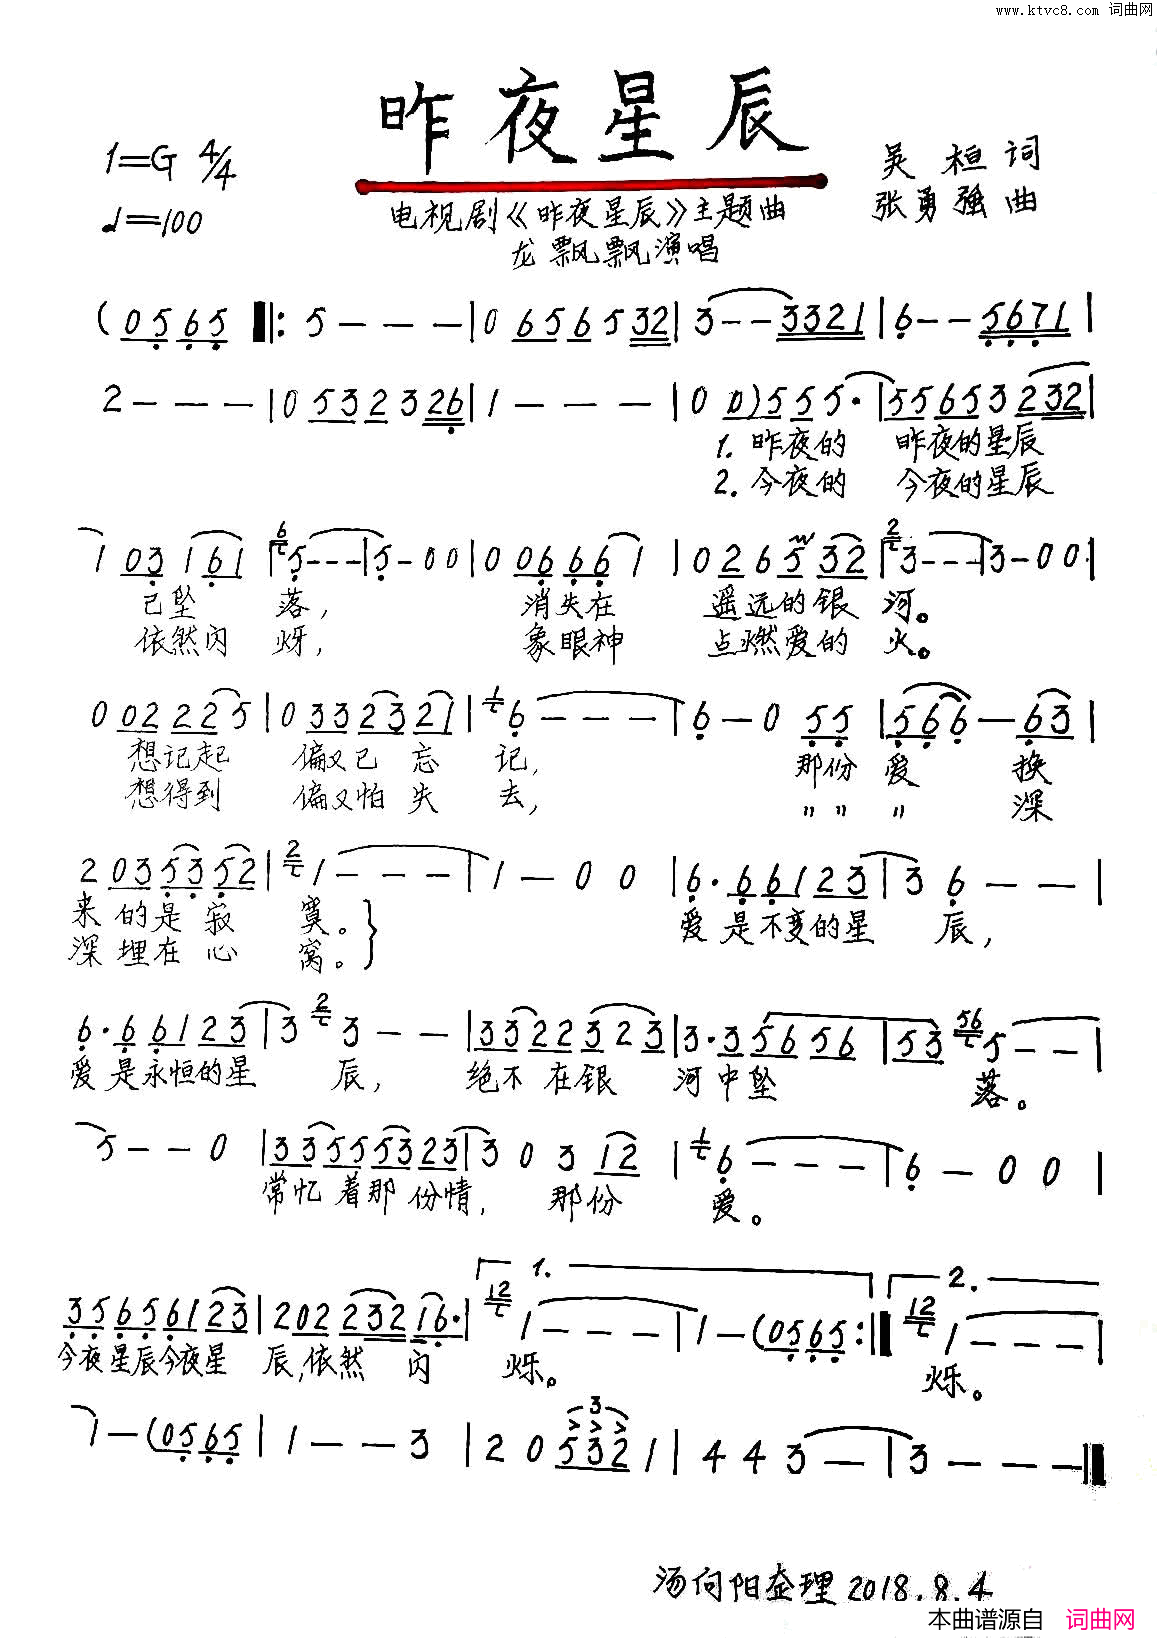 www.ktvc8.com 词曲网
昨夜星辰
1=G 4/4
吴桓词
♩=100
张勇强曲
电视剧《昨夜星辰》主题曲
龙飘飘演唱
(0 5 6 5 ‖: 5 - - - | 0 6 5 6 5 3 2 | 3 - - 3 3 2 1 | 6 - - 5 6 7 1 |
2 - - - | 0 5 3 2 3 2 6 | 1 - - - | 0 0) 5 5 5· | 5 5 6 5 3 2 3 2 |
1. 昨夜的 昨夜的星辰
2. 今夜的 今夜的星辰
1 0 3 1 6 1 | 6 5 - - - | 5 - 0 0 | 0 0 6 6 6 1 | 0 2 6 5 3 2 | 2 3 - - - | 3 - 0 0 |
已坠 落, 消失在 遥远的银 河。
依然闪 烁, 象眼神 点燃爱的 火。
0 0 2 2 2 5 | 0 3 3 2 3 2 1 | 1 6 - - - | 6 - 0 5 5 | 5 6 6 - 6 3 |
想记起 偏又已忘 记, 那份爱 换
想得到 偏又怕失 去, 〃〃 〃 深
2 0 3 5 3 5 2 | 2 1 - - - | 1 - 0 0 | 6· 6 6 1 2 3 | 3 6 - - |
来的是寂 寞。 爱是不变的星 辰,
深埋在心 窝。
6· 6 6 1 2 3 | 3 2 3 - - | 3 3 2 2 3 2 3 | 3· 3 5 6 5 6 | 5 3 56 5 - - |
爱是永恒的星 辰, 绝不在银 河中坠 落。
5 - - 0 | 3 3 5 5 5 3 2 3 | 3 0 3 1 2 | 1 6 - - - | 6 - 0 0 |
常忆着那份情, 那份 爱。
1. 2.
3 5 6 5 6 1 2 3 | 2 0 2 2 3 2 1 6· | 12 1 - - - | 1 - (0 5 6 5 :‖ 12 1 - - - |
今夜星辰今夜星 辰,依然闪 烁。 烁。
3
1 - (0 5 6 5 | 1 - - 3 | 2 0 5 3 2 1 | 4 4 3 - | 3 - - - ‖
汤向阳整理 2018.8.4
本曲谱源自 词曲网